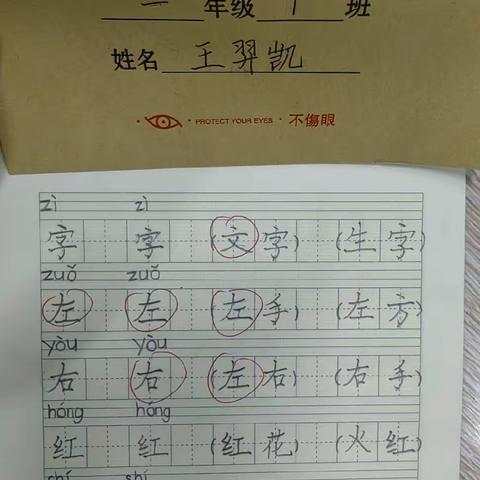 一 年级 1 班
姓名 王羿凯
PROTECT YOUR EYES · 不傷眼
zì zì
字 字 (文字) (生字)
zuǒ zuǒ
左 左 (左手) (左方)
yòu yòu
右 右 (左右) (右手)
hóng hóng
红 红 (红花) (火红)
shí shí